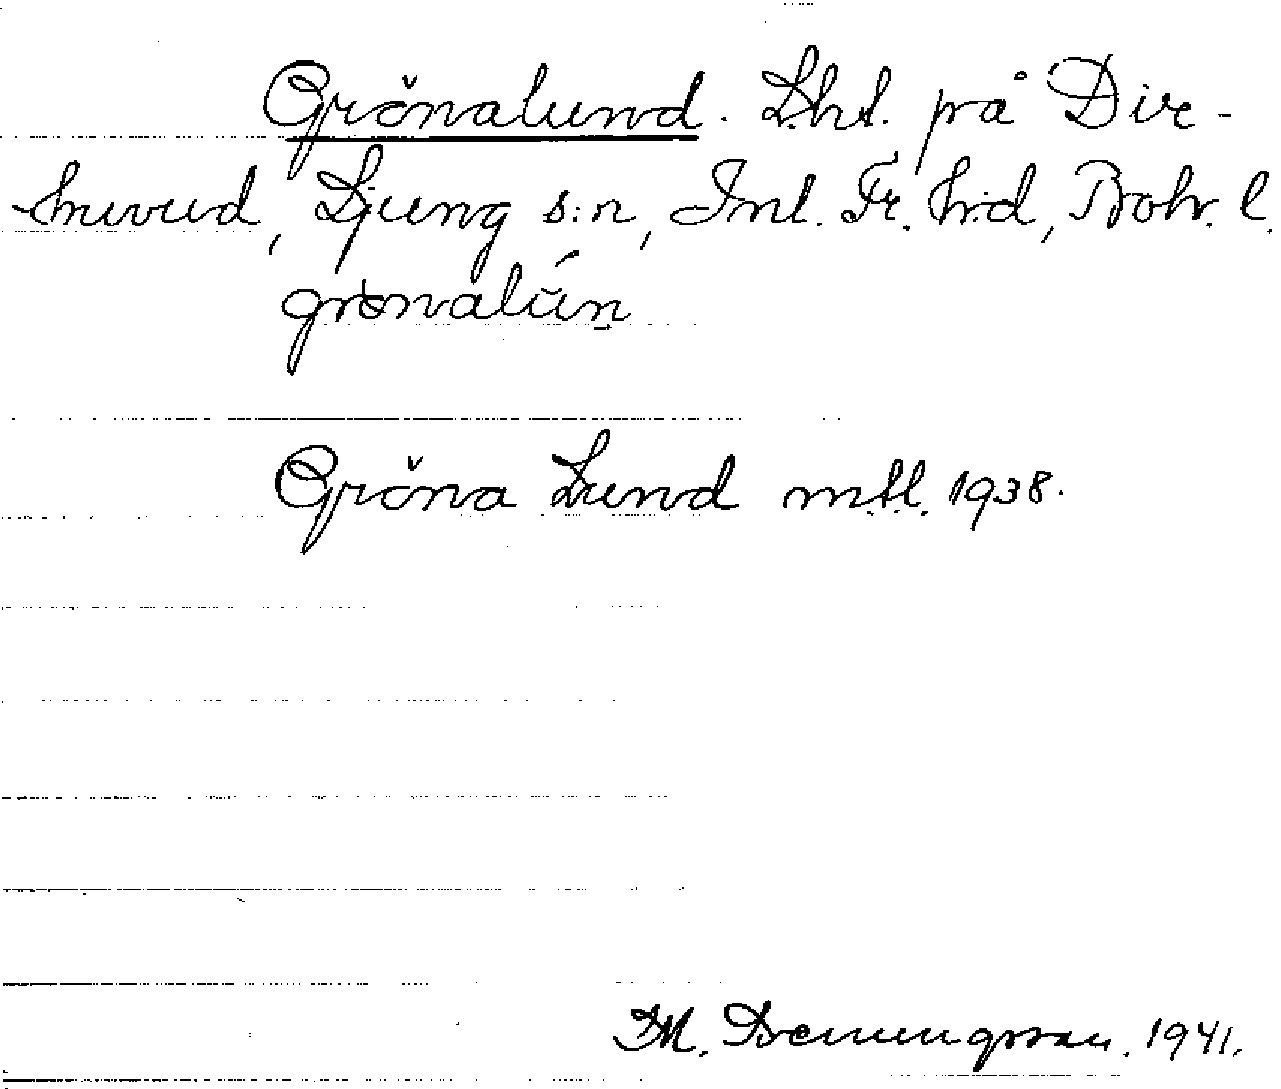 Grönalund. Lht. på Dir-
huvud, Ljung s:n, Inl. Fr. h:d, Boh. l.
grönalún
Gröna Lund mtl. 1938.
1941.